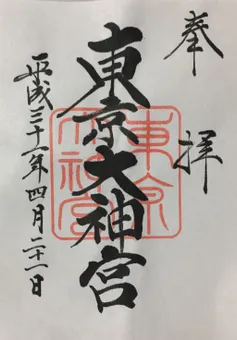 奉拝
東京大神宮
平成三十一年四月二十一日
東京大神宮